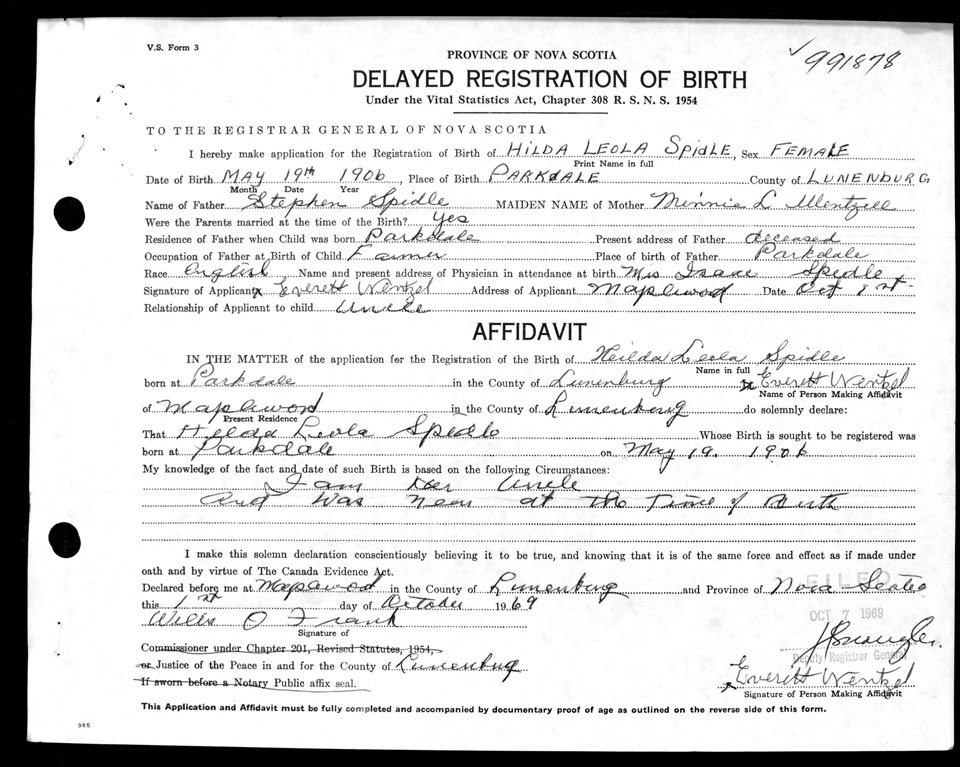 V.S. Form 3
PROVINCE OF NOVA SCOTIA
✓ 991878
DELAYED REGISTRATION OF BIRTH
Under the Vital Statistics Act, Chapter 308 R. S. N. S. 1954
TO THE REGISTRAR GENERAL OF NOVA SCOTIA
I hereby make application for the Registration of Birth of HILDA LEOLA SPIDLE, Sex FEMALE
Print Name in full
Date of Birth MAY 19th 1906, Place of Birth PARKDALE County of LUNENBURG
Month Date Year
Name of Father Stephen Spidle MAIDEN NAME of Mother Minnie L Wentzell
Were the Parents married at the time of the Birth? Yes
Residence of Father when Child was born Parkdale Present address of Father deceased
Occupation of Father at Birth of Child Farmer Place of birth of Father Parkdale
Race English, Name and present address of Physician in attendance at birth Mrs Isaac Spidle
Signature of Applicant x Everett Wentzel Address of Applicant Maplewood Date Oct 1st
Relationship of Applicant to child Uncle
AFFIDAVIT
IN THE MATTER of the application for the Registration of the Birth of Hilda Leola Spidle
Name in full
born at Parkdale in the County of Lunenburg x Everett Wentzel
Name of Person Making Affidavit
of Maplewood in the County of Lunenburg do solemnly declare:
Present Residence
That Hilda Leola Spidle Whose Birth is sought to be registered was
born at Parkdale on May 19. 1906
My knowledge of the fact and date of such Birth is based on the following Circumstances:
I am Her Uncle
And Was Near at the Time of Birth
I make this solemn declaration conscientiously believing it to be true, and knowing that it is of the same force and effect as if made under
oath and by virtue of The Canada Evidence Act.
Declared before me at Maplewood in the County of Lunenburg and Province of Nova Scotia
FILED
this 1st day of October 1969
OCT 7 1969
Willis O Frank
Signature of
Commissioner under Chapter 201, Revised Statutes, 1954,
Deputy Registrar General
or Justice of the Peace in and for the County of Lunenburg
x Everett Wentzel
If sworn before a Notary Public affix seal.
Signature of Person Making Affidavit
This Application and Affidavit must be fully completed and accompanied by documentary proof of age as outlined on the reverse side of this form.
385